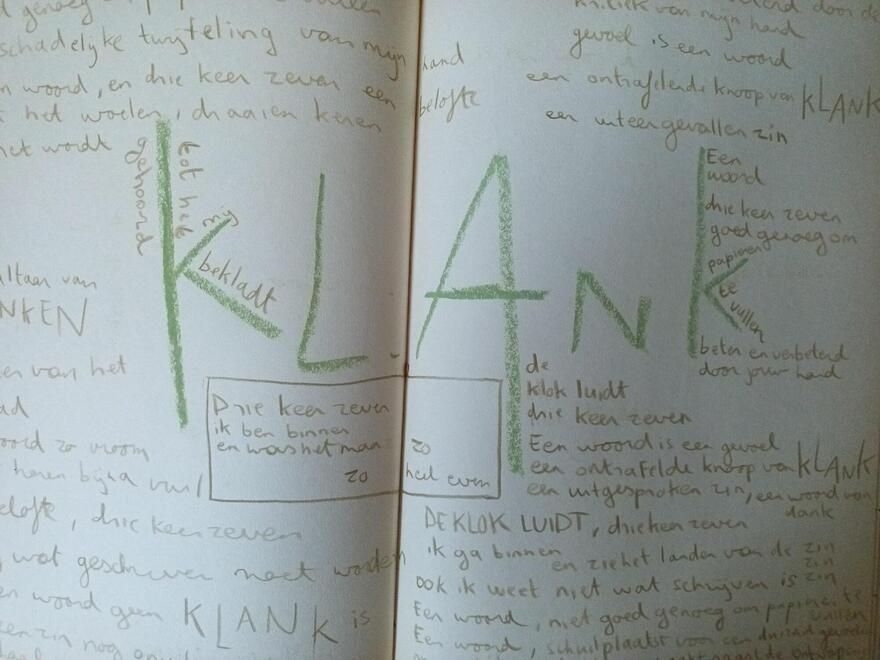 schadelijke twijfeling van mijn hand
woord, en drie keer zeven een belofte
het woelen, draaien keren
het wordt
gehoord
tot het
mij
bekladt
KLANK
altaar van
NKEN
van het
zo vroom
bijna
drie keer zeven
wat geschreven moet worden
woord geen KLANK is
een zin nog
Drie keer zeven
ik ben binnen
en was het maar zo
zo heel even
van mijn hand
gevoel is een woord
een ontrafelende knoop van KLANK
een uiteengevallen zin
Een
woord
drie keer zeven
goed genoeg om
papieren
te
vullen
beter en verbeterd
door jouw hand
de
klok luidt
drie keer zeven
Een woord is een gevoel
een ontrafelde knoop van KLANK
een uitgesproken zin, een woord van
dank
DE KLOK LUIDT, drie keer zeven
ik ga binnen en zie het landen van de zin
zin
ook ik weet niet wat schrijven is zin
Een woord, niet goed genoeg om papieren te
vullen
Een woord, schuilplaats voor een duizend